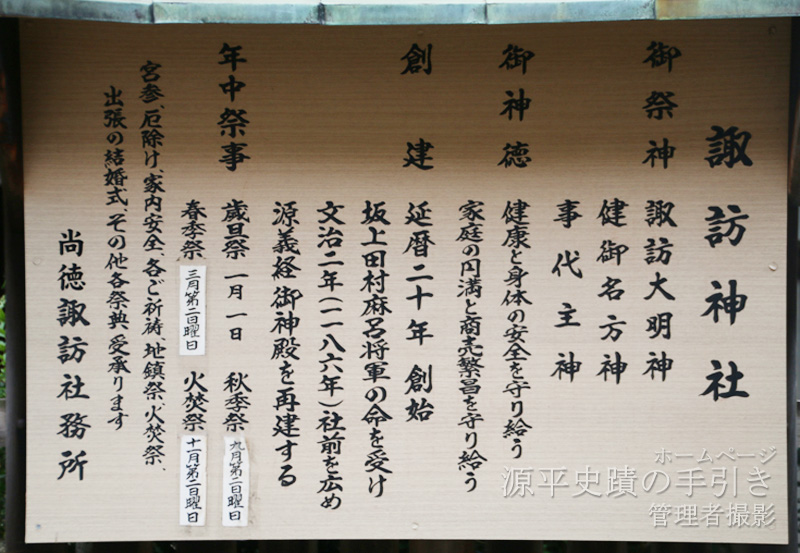 諏訪神社
御祭神 諏訪大明神
健御名方神
事代主神
御神徳 健康と身体の安全を守り給う
家庭の円満と商売繁昌を守り給う
創建 延暦二十年 創始
坂上田村麻呂将軍の命を受け
文治二年(一一八六年)社前を広め
源義経御神殿を再建する
年中祭事 歳旦祭 一月一日 秋季祭 九月第二日曜日
春季祭 三月第二日曜日 火焚祭 十一月第二日曜日
宮参、厄除け、家内安全、各ご祈祷、地鎮祭、火焚祭、
出張の結婚式、その他各祭典、受承ります
尚徳諏訪社務所
ホームページ
源平史蹟の手引き
管理者撮影